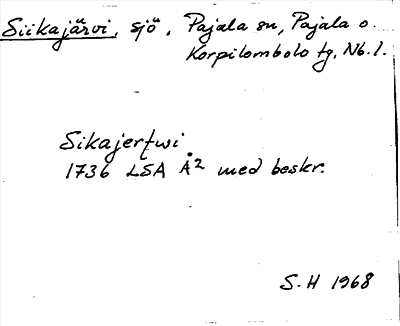 Siikajärvi, sjö, Pajala sn, Pajala o.
Korpilombolo tg, Nb. l.
Sikajerfwi
1736 LSA Å2 med beskr.
S.H 1968